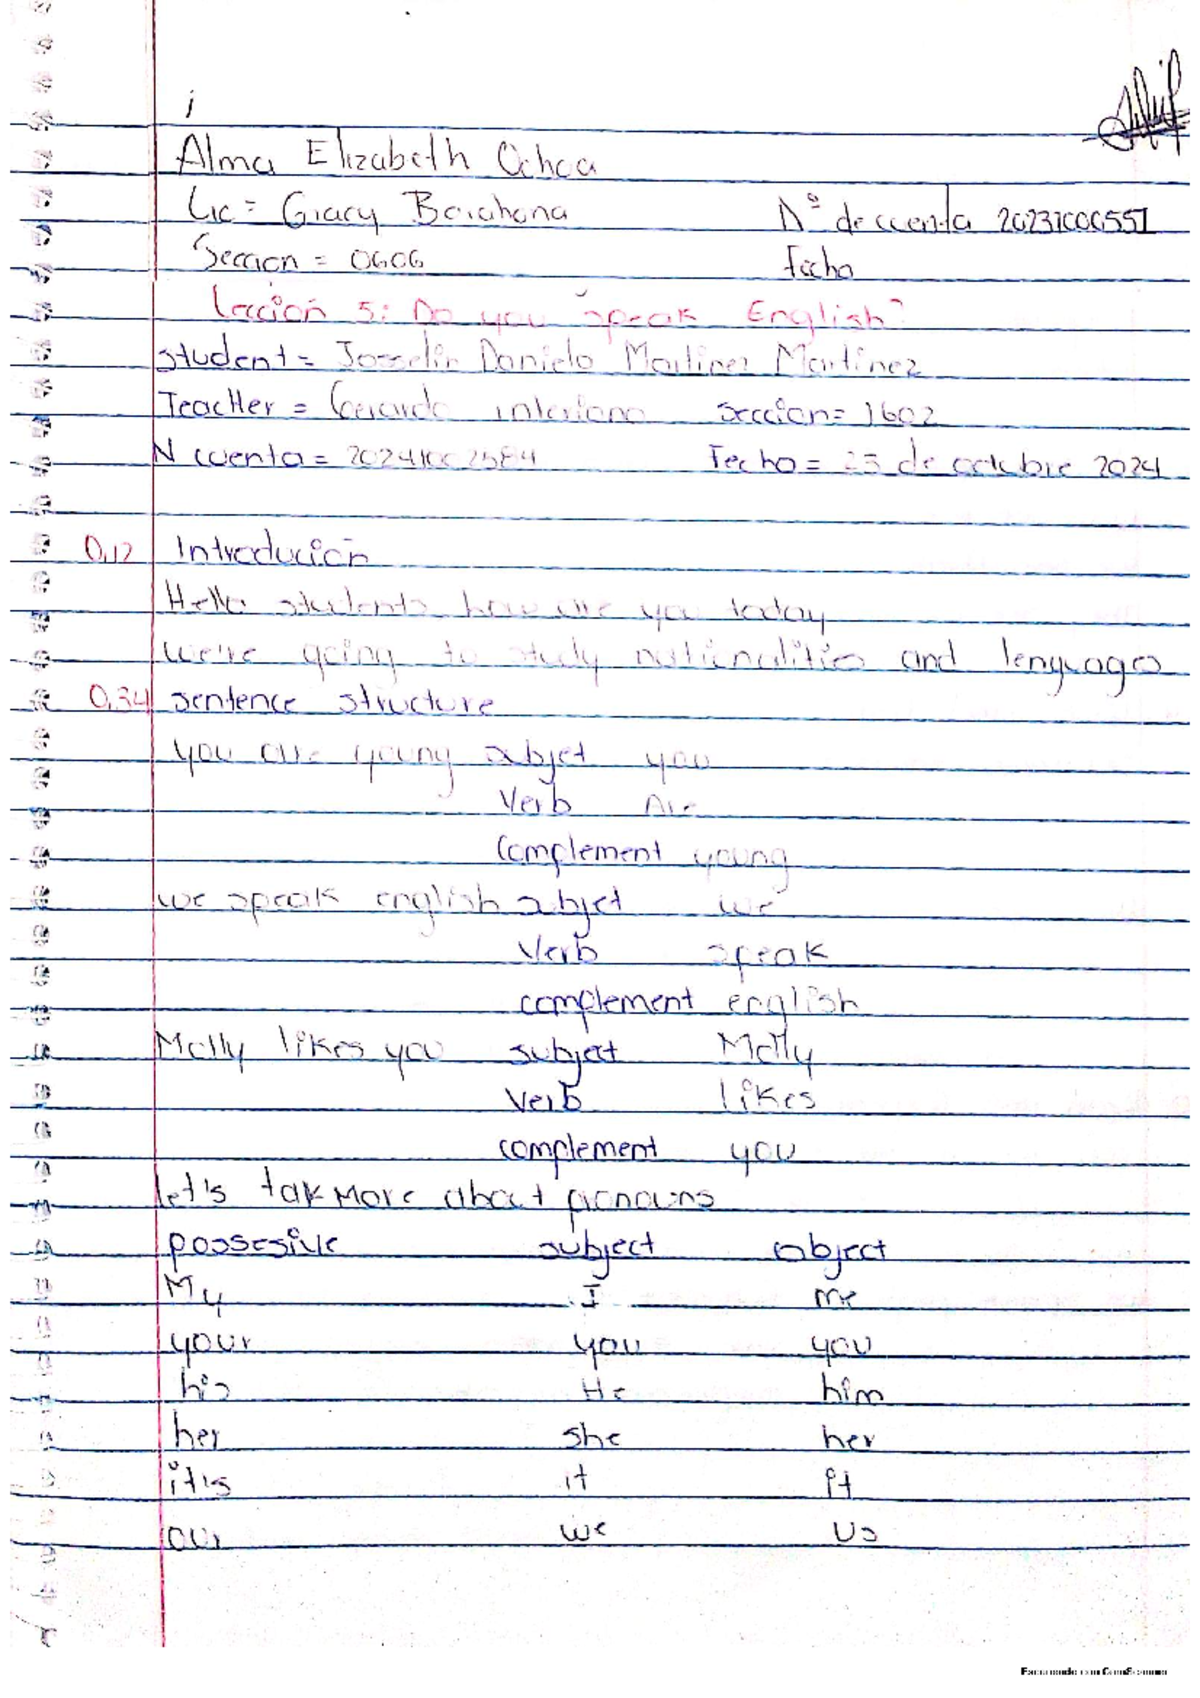 i
Alma Elizabeth Ochoa
Lic = Gracy Barahona N° de cuenta 20231000551
Seccion = 0606 Fecha
Lección 5: Do you speak English?
student = Josselin Daniela Martinez Martinez
Teacher = Gerardo interiano seccion = 1602
N cuenta = 20241002584 Fecha = 25 de octubre 2024
0,12 Introducion
Hello students how are you today
we're going to study nationalities and lenguages
0,34 sentence structure
you are young subjet you
Verb Are
Complement young
we speak english subjet we
Verb speak
complement english
Molly likes you subject Molly
Verb likes
complement you
let's talk More about pronouns
possesive subject object
My I me
your you you
his He him
her she her
it's it it
our we us
Escaneado con CamScanner